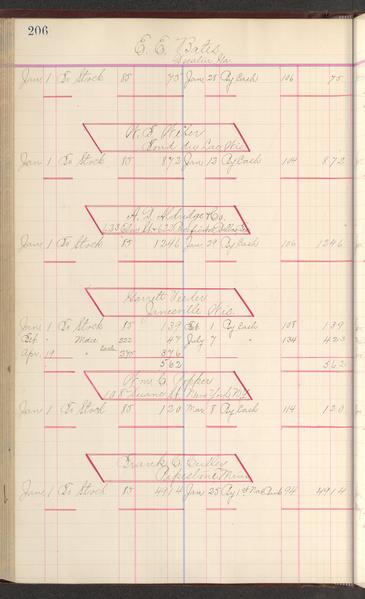 206
E. E. Bates
Ga.
Jan 1 To Stock 85 75 Jan 28 By Cash 106 75
W. E.
Fond du Lac Wis.
Jan 1 To Stock 85 872 Jan 13 By Cash 104 872
A. D. Aldridge & Co.
Elm St Dallas
Jan 1 To Stock 85 1246 Jan 29 By Cash 106 1246
Harrett Veeder
Janesville Wis.
Jan 1 To Stock 85 139 Feb 1 By Cash 108 139
Feb " Mdse 222 47 July 7 " 134 423
Apr. 19 " Cash 275 376
562 562
Wm. C. Popper
108 Duane St. New York NY
Jan 1 To Stock 85 120 Mar 8 By Cash 114 120
Frank C.
Pipestone Minn
Jan 1 To Stock 85 4914 Jan 25 By 1st Nat Bank 94 4914